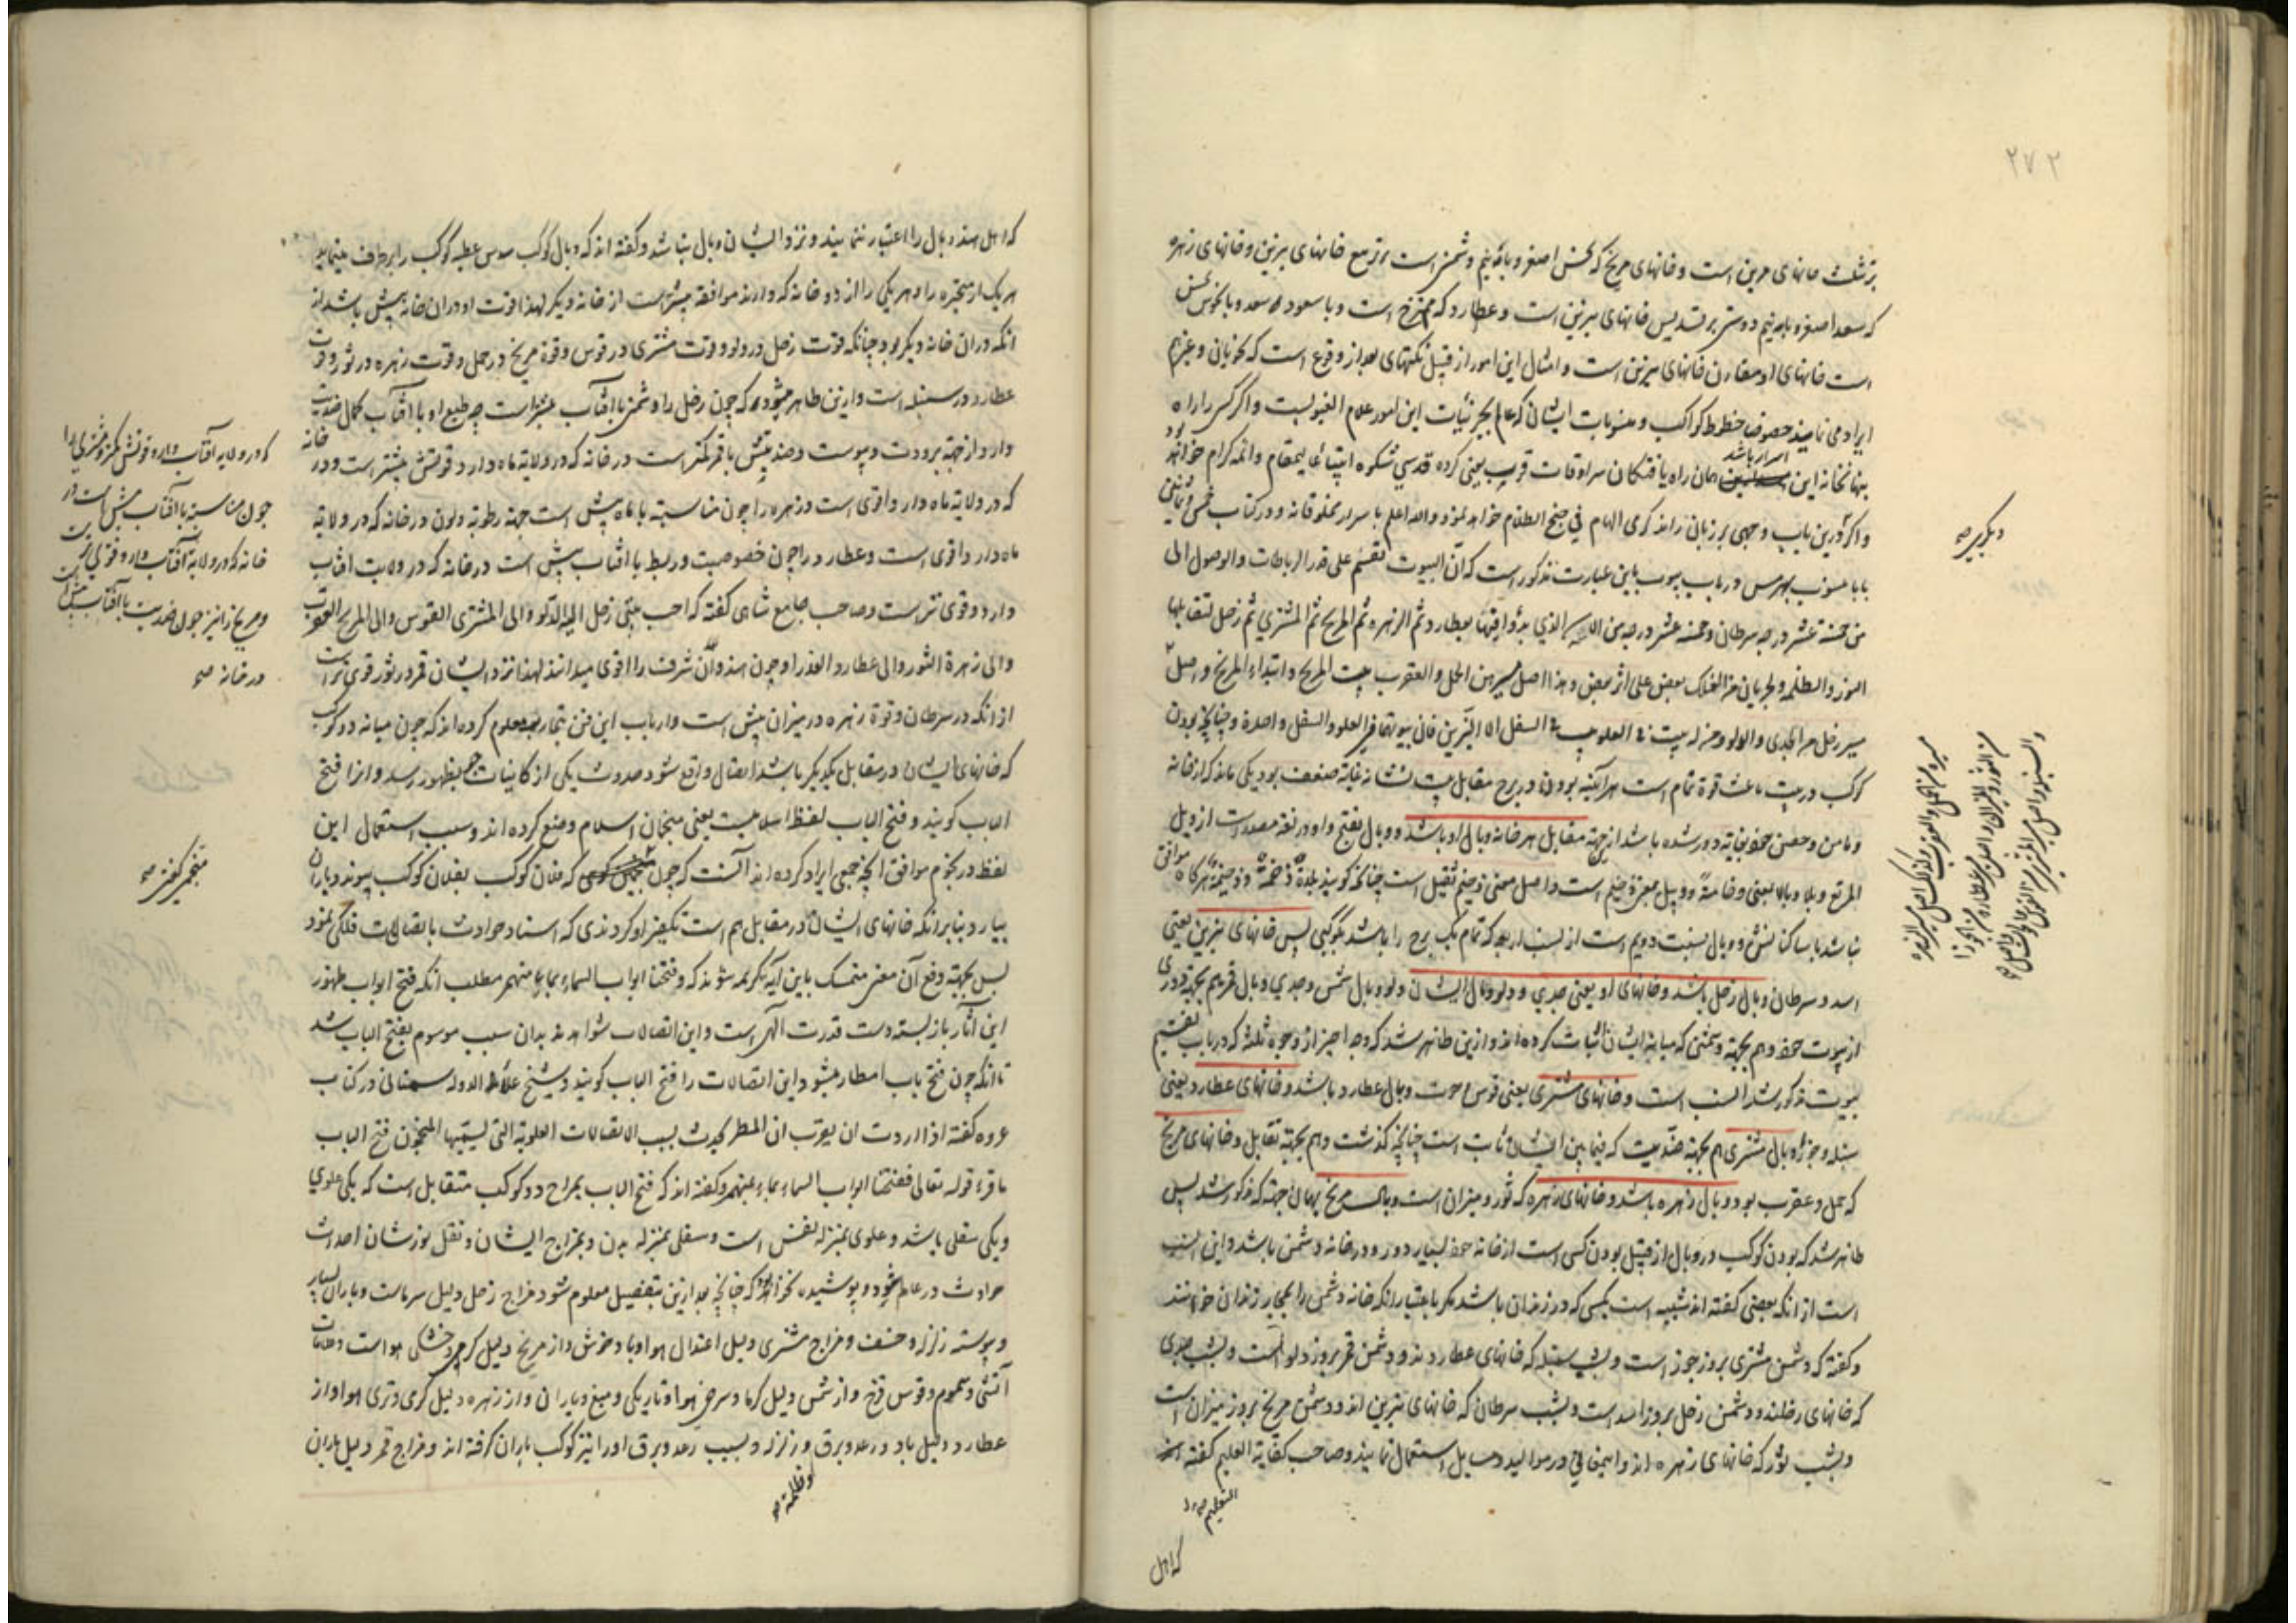 ۲۷۲
بر تثلیث خانهای نیرین است و خانهای مریخ که نحس اصغر و باء نیم دشمن است بر تربیع خانهای نیرین و خانهای زهره
که سعد اصغر و باء نیم دوستی بر تسدیس خانهای نیرین است و عطارد که ممتزج است و با سعود سعد و با نحوس نحس
است خانهای او مقارن خانهای نیرین است و امثال این امور از قبیل نکتهای بعد از وقوع است که نحویان و غیرهم
ایراد می نمایند خصوص حظوظ کواکب و منسوبات ایشان که عالم بجزئیات این امور علام الغیوبست و اگر کسی را راه
بنهانخانه این اسرار باشد همان راه یافتگان سرادقات قرب یعنی کرده قدسی شکوه انبیا عالیمقام و ائمه کرام خواهد بود
و اگر درین باب وجهی بر زبانی راند کرمی الهام فی جنح الظلام خواهد بود والله اعلم باسرار مخلوقاته و در کتاب
بابا منسوب بهرمس در باب بیوت باین عبارت مذکور است که ان البیوت تقسم علی قدر الرباطات والوصول الی
من خمسة عشر درجه سرطان و خمسة عشر درجه من الاسد الذی بدؤ اقتها بعطارد ثم الزهره ثم المریخ ثم المشتری ثم زحل لتقابلها
النور والظلمه و لجریان هذا الفلک بعض علی اثر بعض و هذا اصل مسیرهن الحمل والعقرب بیت المریخ و ابتداء المریخ و اصل
مسیر زحل من الجدی والدلو
کوکب در بیت باعث قوة تمام است هر آینه بودن در برج مقابل بیت نشانه غایة ضعف بود یکی ماند که از خانه
و مامن و حصن خود بغایة دور شده باشد از جهة مقابل هر خانه وبال او باشد و وبال بفتح واو در لغة مصدرست از وبل
المرتع وبلا و وبالا بمعنی وخامة و وبیل بمعنی وخیم است و اصل معنی وخیم ثقیل است چنانکه گویند بلدة وخمة و وخیمة هرگاه موافق
نباشد با ساکنانش و وبال بنسبت دویم است از نسب اربعه که تمام یک برج را باشد بکوکبی پس خانهای نیرین یعنی
اسد و سرطان وبال زحل باشد و خانهای او یعنی جدی و دلو وبال ایشان دلو وبال شمس و جدی وبال قمر هم بجهة دوری
از بیوت خود و هم بجهة دشمنی که میانه ایشان اثبات کرده اند و ازین ظاهر شد که وجه اخیر از وجوه ثلثه که در باب تقسیم
بیوت مذکور شد انسب است و خانهای مشتری یعنی قوس و حوت وبال عطارد باشد و خانهای عطارد یعنی
سنبله و جوزا وبال مشتری هم بجهة ضدیت که فیمابین ایشان ثابت است چنانچه گذشت و هم بجهة تقابل و خانهای مریخ
که حمل و عقرب بود وبال زهره باشد و خانهای زهره که ثور و میزان است وبال مریخ بهمان جهة که مذکور شد پس
ظاهر شد که بودن کوکب در وبال از قبیل بودن کسی است از خانه خود بسیار دور و در خانه دشمن باشد و این انسب
است از انکه بعضی گفته اند شبیه است بکسی که در زندان باشد مگر باعتبار انکه خانه دشمن را بمجاز زندان خوانند
و گفته که دشمن مشتری بروز جوز است و بشب سنبله که خانهای عطاردند و دشمن قمر بروز دلو است و بشب جدی
که خانهای زحلند و دشمن زحل بروز اسد است و بشب سرطان که خانهای نیرین اند و دشمن مریخ بروز میزان است
و بشب ثور که خانهای زهره اند و اهمیانی در موالید و مسایل استعمال نمایند و صاحب کفایة التعلیم گفته
التعلیم
که اهل
دیگر بر صح
که اهل هند وبال را اعتبار ننمایند و نزد ایشان وبال نباشد و گفته اند که وبال کوکب عطیه کوکب را برطرف مینماید
هر یک از متحیره را و هر یکی را از دو خانه که دارند موافقه بیشترست از خانه دیگر لهذا قوت او در ان خانه بیش باشد از
انکه در ان خانه دیگر بود چنانکه قوت زحل در دلو و قوت مشتری در قوس و قوة مریخ در حمل و قوت زهره در ثور و قوت
عطارد در سنبله است و ازین ظاهر میشود که چون زحل را دشمنی با آفتاب بیشتر است چه طبع او با آفتاب کمال ضدیت
دارد از جهة برودت و یبوست و ضدیتش با قمر کمتر است در خانه که در ولایة ماه دارد قوتش بیشتر است و در خانه
که در ولایة ماه دارد اقوی است و زهره را چون مناسبة با ماه بیش است جهة رطوبة و لون در خانه که در ولایة
ماه دارد اقوی است و عطارد را چون خصوصیت و ربط با آفتاب بیش است در خانه که در ولایت آفتاب
دارد قوی ترست و صاحب جامع شاهی گفته که احب بیتی زحل الیه الدلو والی المشتری القوس والی المریخ العقرب
والی زهرة الثور والی عطارد العذرا و چون هندوان شرف را اقوی میدانند لهذا نزد ایشان قمر در ثور قوی ترست
از انکه در سرطان و قوة زهره در میزان بیش است و ارباب این فن بتجارب معلوم کرده اند که چون میانه دو کوکب
که خانهای ایشان در مقابل یکدیگر باشد اتصال واقع شود حدوث یکی از کاینات جو بظهور رسد و انرا فتح
الباب گویند و فتح الباب لفظ اسلامیست یعنی منجمان اسلام وضع کرده اند و سبب استعمال این
لفظ در نجوم موافق انچه جمعی ایراد کرده اند آنست که چون که فلان کوکب بفلان کوکب پیوندد باران
بیارد بنابر انکه خانهای ایشان در مقابل هم است تکفیر او کردندی که اسناد حوادث باتصالات فلکی نمود
پس بجهة دفع آن معنی متمسک باین آیه کریمه شوند که و فتحنا ابواب السماء بماء منهمر مطلب انکه فتح ابواب ظهور
این آثار باز بسته دست قدرت الهی است و این اتصالات شواهدند بدان سبب موسوم بفتح الباب شد
تا انکه چون فتح باب امطار میشود این اتصالات را فتح الباب گویند و شیخ علاء الدوله سمنانی در کتاب
عروه گفته اذا اردت ان یعرب ان المطر یحدث بسبب الاتصالات العلویة التی یسمیها المنجمون فتح الباب
فاقرء قوله تعالی ففتحنا ابواب السماء بماء منهمر و گفته اند که فتح الباب بمزاج دو کوکب متقابل است که یکی علوی
و یکی سفلی باشد و علوی بمنزله نفس است و سفلی بمنزله بدن و بمزاج ایشان و نقل نورشان احداث
حوادث در عالم شود و پوشیده نخواهد بود که چنانچه بعد ازین بتفصیل معلوم شود مزاج زحل دلیل سرماست و باران بسیار
و پیوسته زلزله و خسف و مزاج مشتری دلیل اعتدال هوا و باد خوش و از مریخ دلیل گرمی و خشکی هوا است و علامات
آتشی و سموم و قوس قزح و از شمس دلیل گرما و سرخی هوا و تاریکی و میغ و باران و از زهره دلیل گرمی و تری هوا و از
عطارد دلیل باد و رعد و برق و زلزله و بسبب رعد و برق او را نیز کوکب باران گرفته اند و مزاج قمر دلیل باران
و ظلمة صح
که در ولایه آفتاب دارد قوتش کمتر و مشتری را
چون مناسبه با آفتاب بیش است در
خانه که در ولایة آفتاب دارد قوی است
و مریخ را نیز چون ضدیت با آفتاب بیش است
در خانه صح
منجم گفتی صح